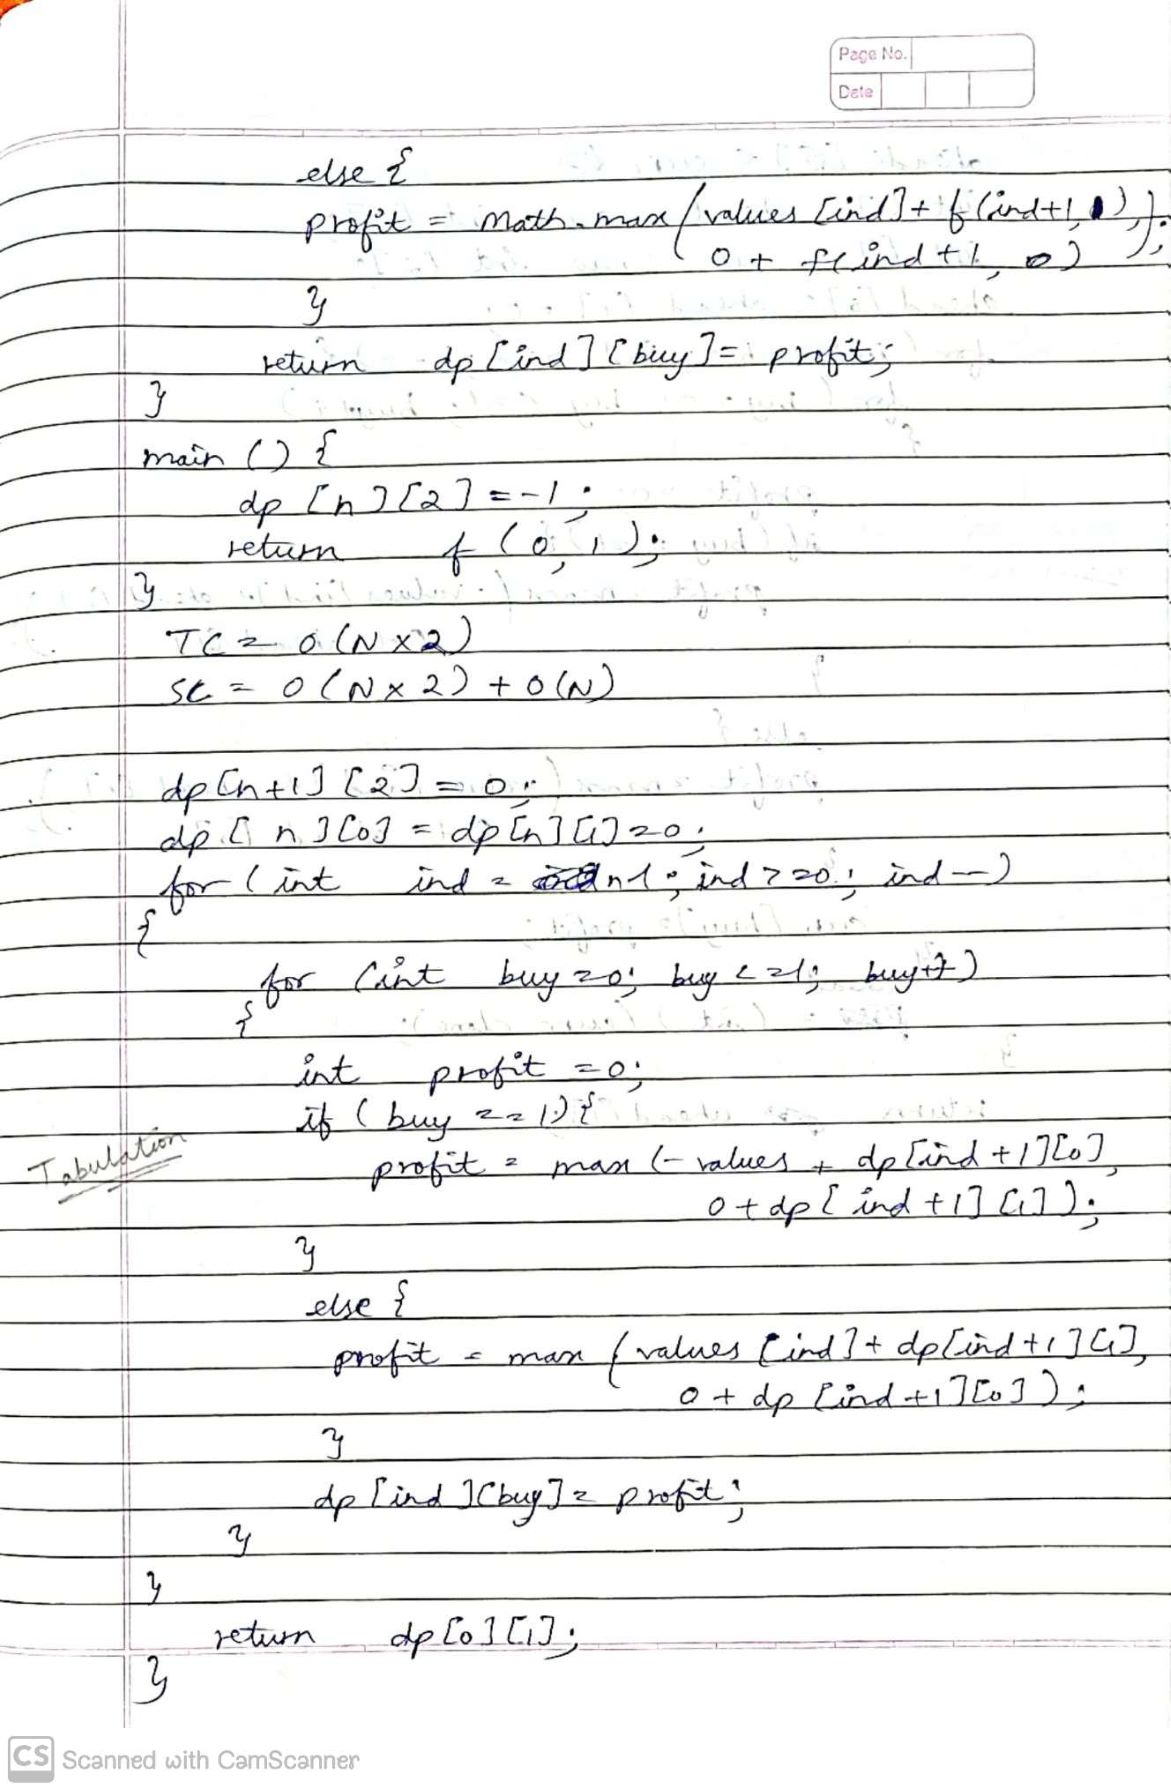 Page No.
Date
else {
profit = Math.max (values [ind] + f(ind+1, 1),
0 + f(ind+1, 0) );
}
return dp [ind] [buy] = profit;
}
main () {
dp [n] [2] = -1;
return f (0, 1);
}
TC = O (N x 2)
SC = O (N x 2) + O(N)
dp [n+1] [2] = 0;
dp [n] [0] = dp [n] [1] = 0;
for (int ind = n-1; ind >= 0; ind --)
{
for (int buy = 0; buy <= 1; buy++)
{
int profit = 0;
if (buy == 1) {
Tabulation
profit = max (- values + dp [ind +1] [0],
0 + dp [ind +1] [1] );
}
else {
profit = max (values [ind] + dp [ind +1] [1],
0 + dp [ind +1] [0] );
}
dp [ind] [buy] = profit;
}
}
return dp [0] [1];
}
CS Scanned with CamScanner